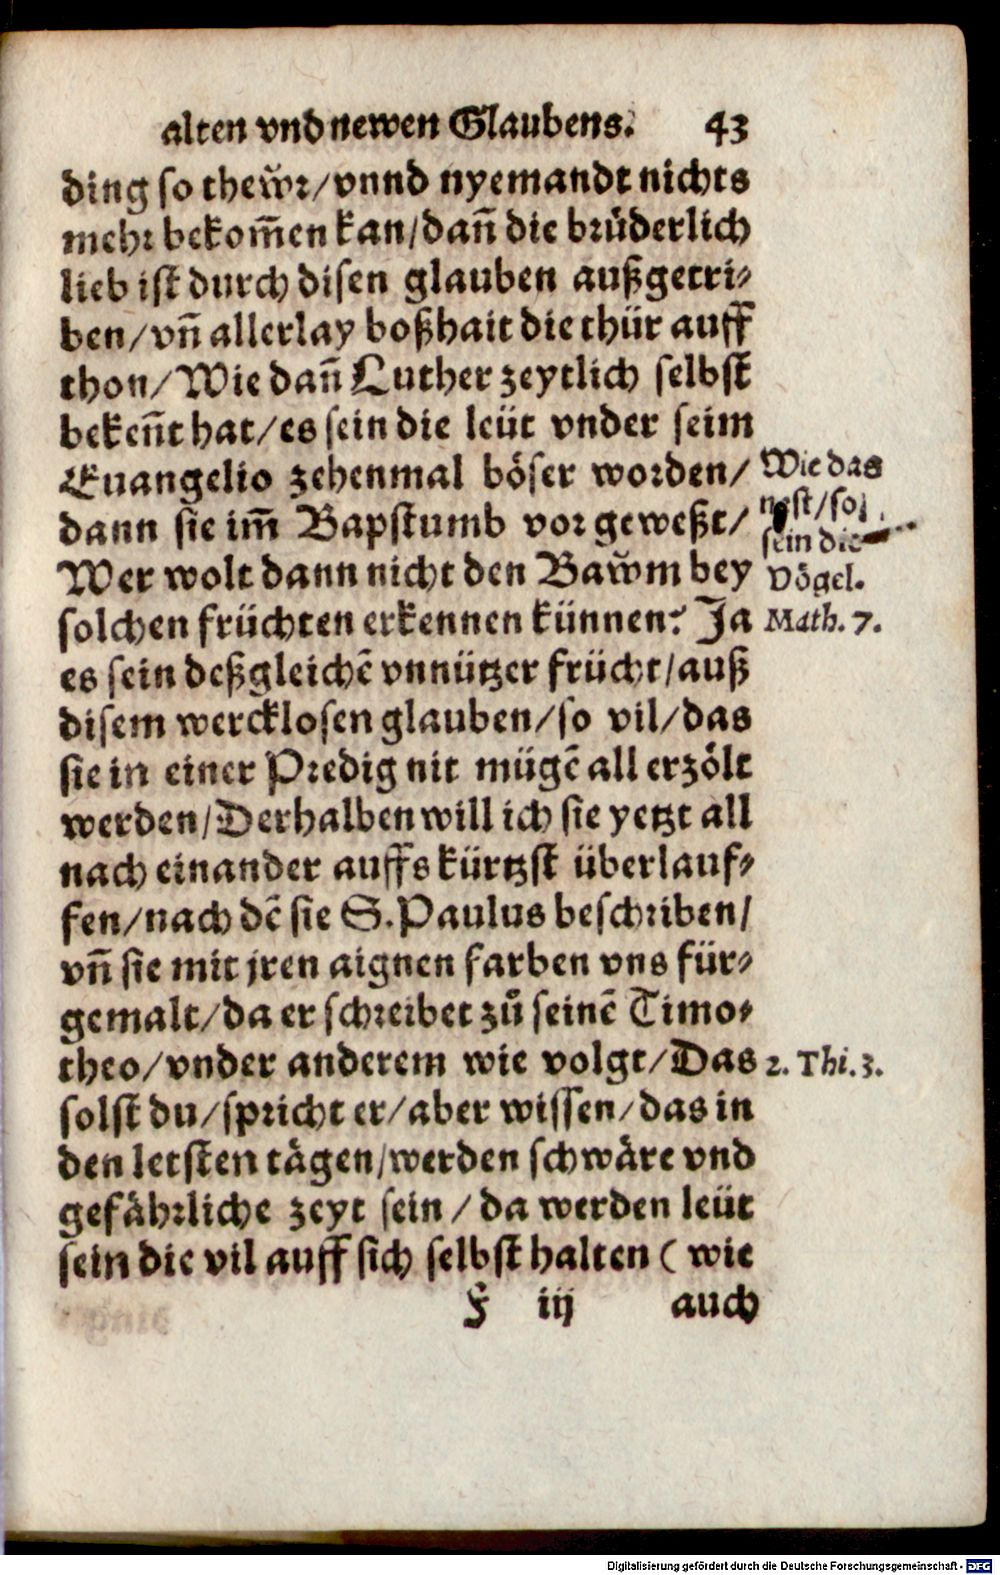 alten vnd newen Glaubens. 43
ding so thew̆r/vnnd nyemandt nichts
mehr bekom̃en kan/dañ die brüderlich
lieb ist durch disen glauben außgetri-
ben/vñ allerlay boßhait die thür auff
thon/Wie dañ Luther zeytlich selbst
bekeñt hat/es sein die leüt vnder seim
Euangelio zehenmal böser worden/
dann sie im̃ Bapstumb vor geweßt/
Wer wolt dann nicht den Baw̆m bey
solchen früchten erkennen künnen? Ja
es sein deßgleichẽ vnnützer frücht/auß
disem wercklosen glauben/so vil/das
sie in einer Predig nit mügẽ all erzölt
werden/Derhalben will ich sie yetzt all
nach einander auffs kürtzst überlauf-
fen/nach dẽ sie S. Paulus beschriben/
vñ sie mit jren aignen farben vns für-
gemalt/da er schreibet zů seinẽ Timo-
theo/vnder anderem wie volgt/Das
solst du/spricht er/aber wissen/das in
den letsten tägen/werden schwäre vnd
gefährliche zeyt sein/da werden leüt
sein die vil auff sich selbst halten (wie
F iij auch
Wie das
nest/so
sein die
Vögel.
Math. 7.
2. Thi. 3.
Digitalisierung gefördert durch die Deutsche Forschungsgemeinschaft - DFG